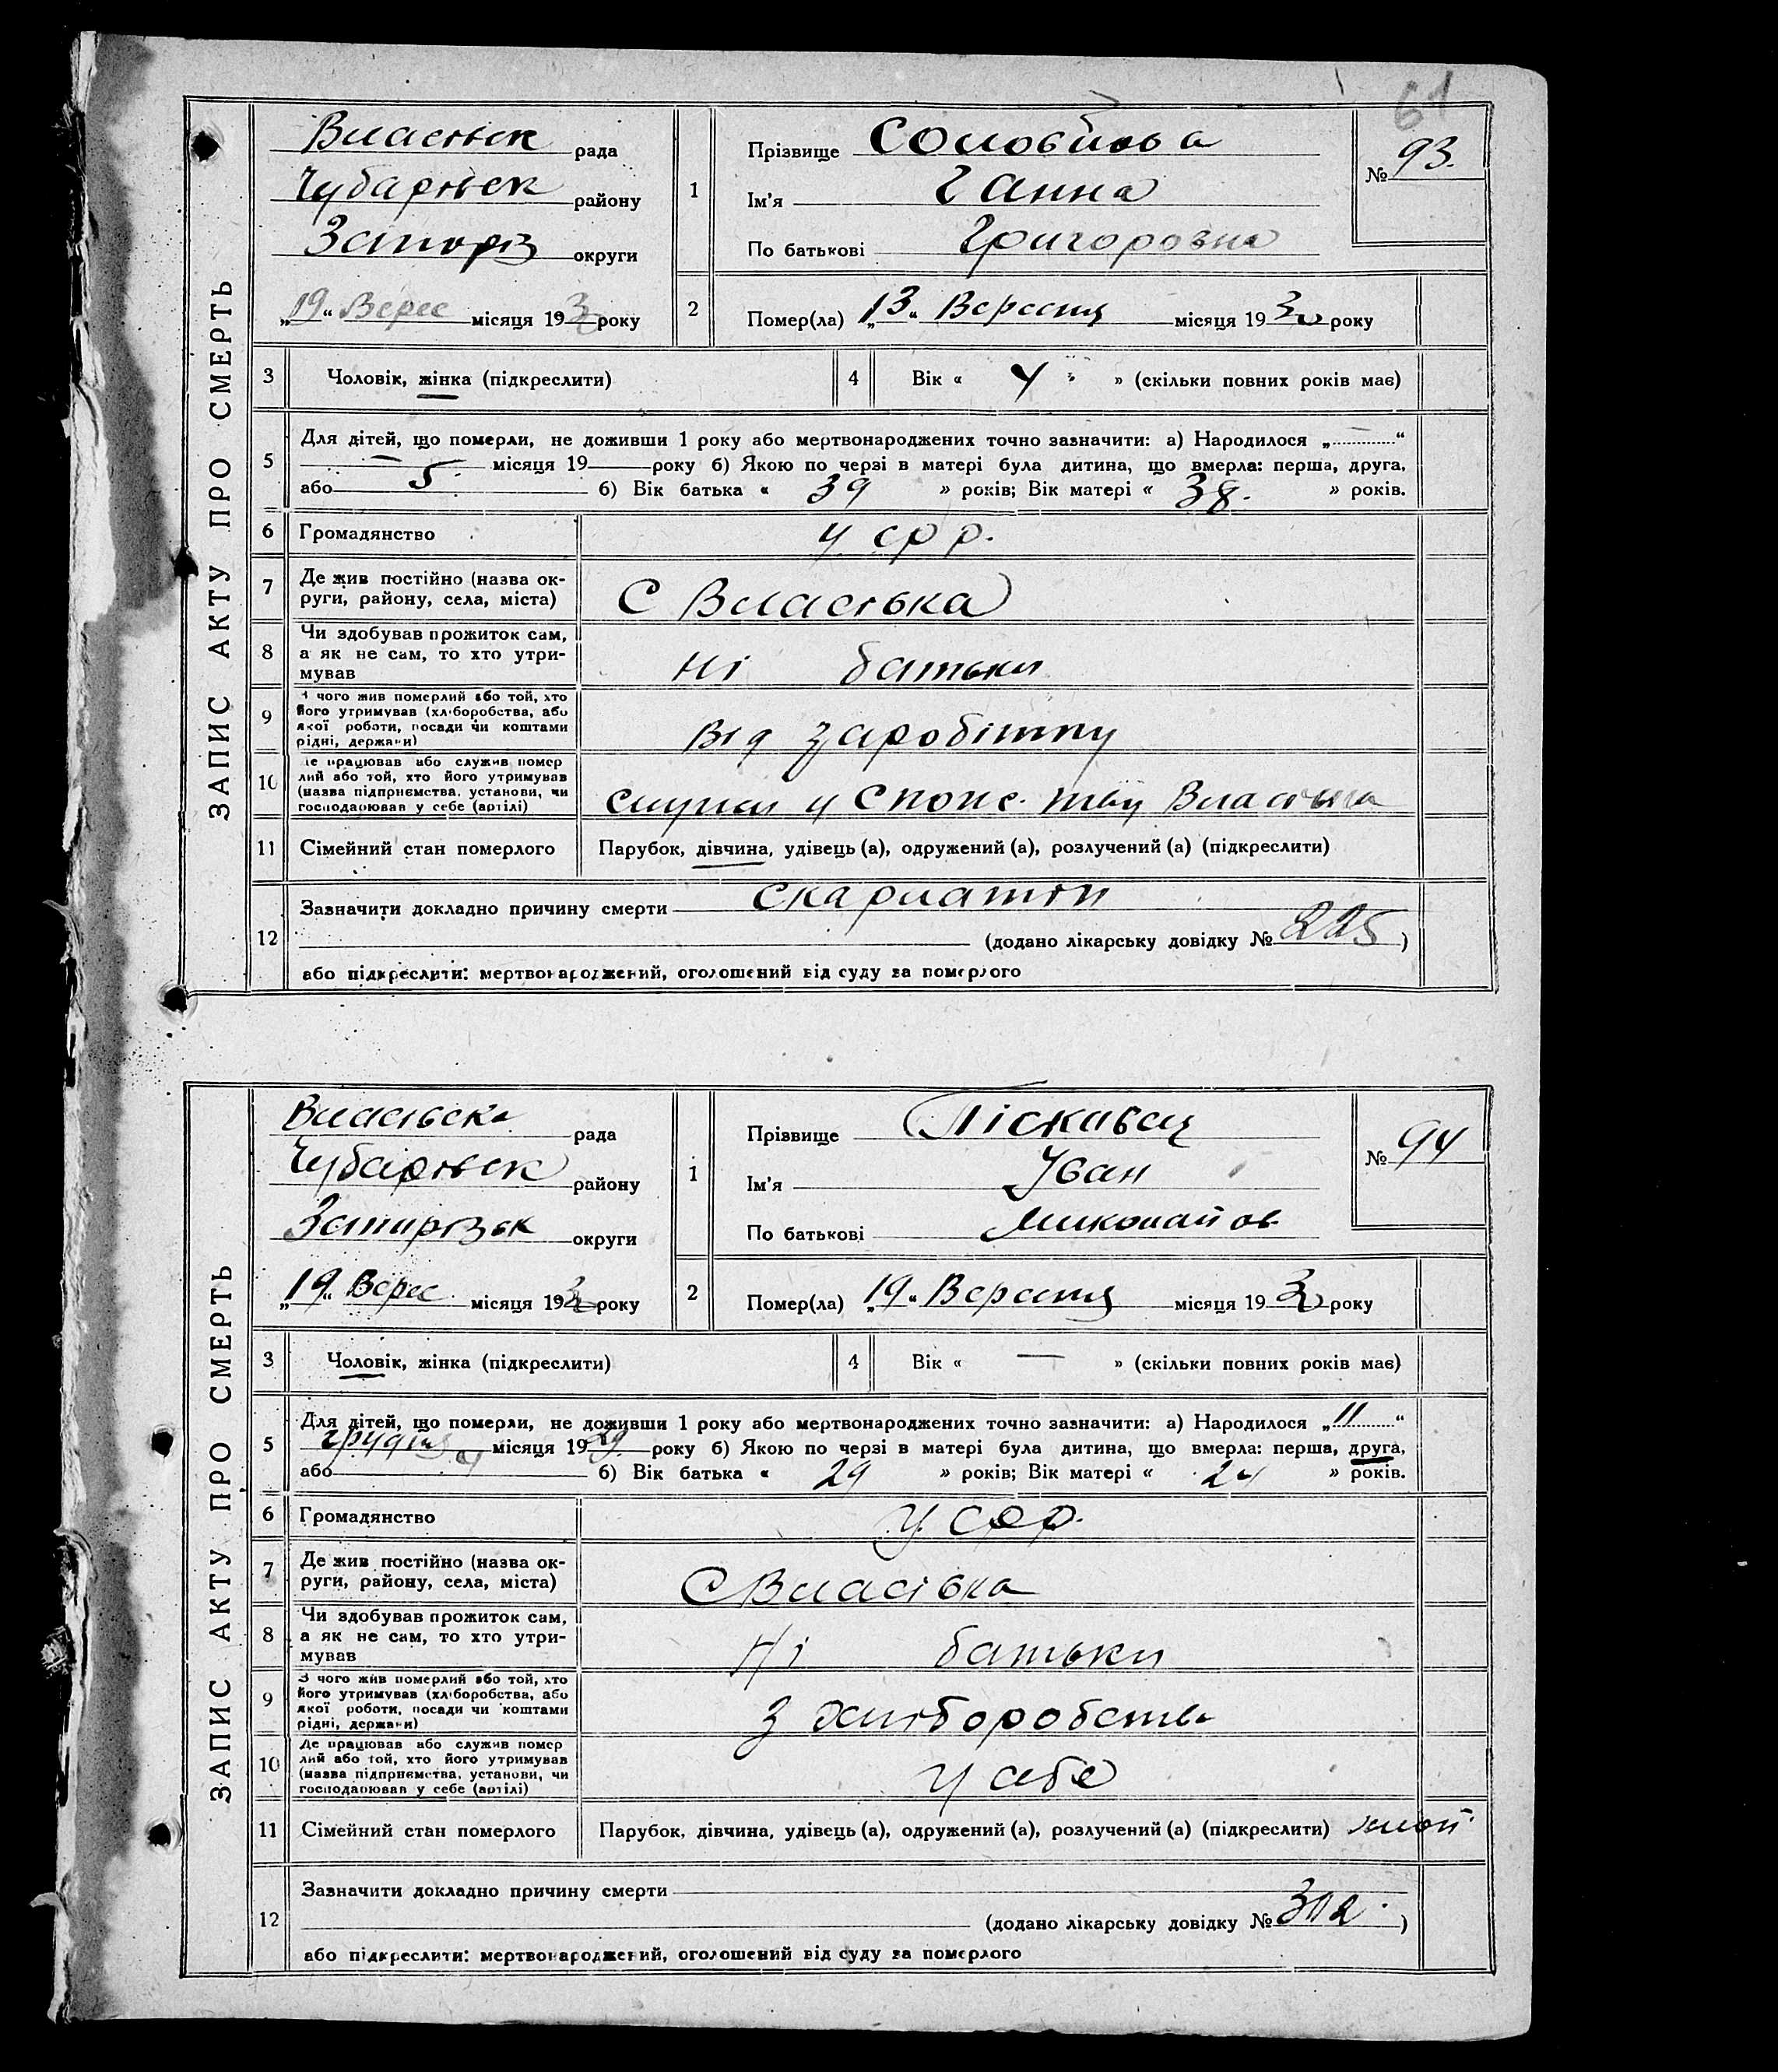 61
ЗАПИС АКТУ ПРО СМЕРТЬ
Власівск рада
Чубарівск району
Запоріз округи
„19“ Верес місяця 1930 року
1 Прізвище Соловйова
Ім'я Ганна
По батькові Григоровна
№ 93.
2 Помер(ла) „13“ Вересня місяця 1930 року
3 Чоловік, жінка (підкреслити)
4 Вік « 4 » (скільки повних років має)
5 Для дітей, що померли, не доживши 1 року або мертвонароджених точно зазначити: а) Народилося „ — “
— місяця 19 року б) Якою по черзі в матері була дитина, що вмерла: перша, друга,
або 5. б) Вік батька « 39 » років; Вік матері « 38. » років.
6 Громадянство УСРР.
7 Де жив постійно (назва ок-
руги, району, села, міста) С Власівка
8 Чи здобував прожиток сам,
а як не сам, то хто утри-
мував Ні батьки
9 З чого жив померлий або той, хто
його утримував (хліборобства, або
якої роботи, посади чи коштами
рідні, держави) Від заробітку
10 Де працював або служив помер
лий або той, хто його утримував
(назва підприємства, установи, чи
господарював у себе (артілі) у Спож. тву Власівка
11 Сімейний стан померлого Парубок, дівчина, удівець (а), одружений (а), розлучений (а) (підкреслити)
12 Зазначити докладно причину смерти скарлатін
(додано лікарську довідку № 225 )
або підкреслити: мертвонароджений, оголошений від суду за померлого
ЗАПИС АКТУ ПРО СМЕРТЬ
Власівска рада
Чубарівск району
Запорізьк округи
„19“ Верес місяця 1930 року
1 Прізвище
Ім'я Іван
По батькові Миколайов
№ 94
2 Помер(ла) „19“ Вересня місяця 1930 року
3 Чоловік, жінка (підкреслити)
4 Вік « — » (скільки повних років має)
5 Для дітей, що померли, не доживши 1 року або мертвонароджених точно зазначити: а) Народилося „11“
грудня місяця 1929 року б) Якою по черзі в матері була дитина, що вмерла: перша, друга,
або б) Вік батька « 29 » років; Вік матері « 24 » років.
6 Громадянство УСРР.
7 Де жив постійно (назва ок-
руги, району, села, міста) С Власівка
8 Чи здобував прожиток сам,
а як не сам, то хто утри-
мував Ні батьки
9 З чого жив померлий або той, хто
його утримував (хліборобства, або
якої роботи, посади чи коштами
рідні, держави) з хліборобства
10 Де працював або служив помер
лий або той, хто його утримував
(назва підприємства, установи, чи
господарював у себе (артілі) у себе
11 Сімейний стан померлого Парубок, дівчина, удівець (а), одружений (а), розлучений (а) (підкреслити)
12 Зазначити докладно причину смерти
(додано лікарську довідку № 312. )
або підкреслити: мертвонароджений, оголошений від суду за померлого